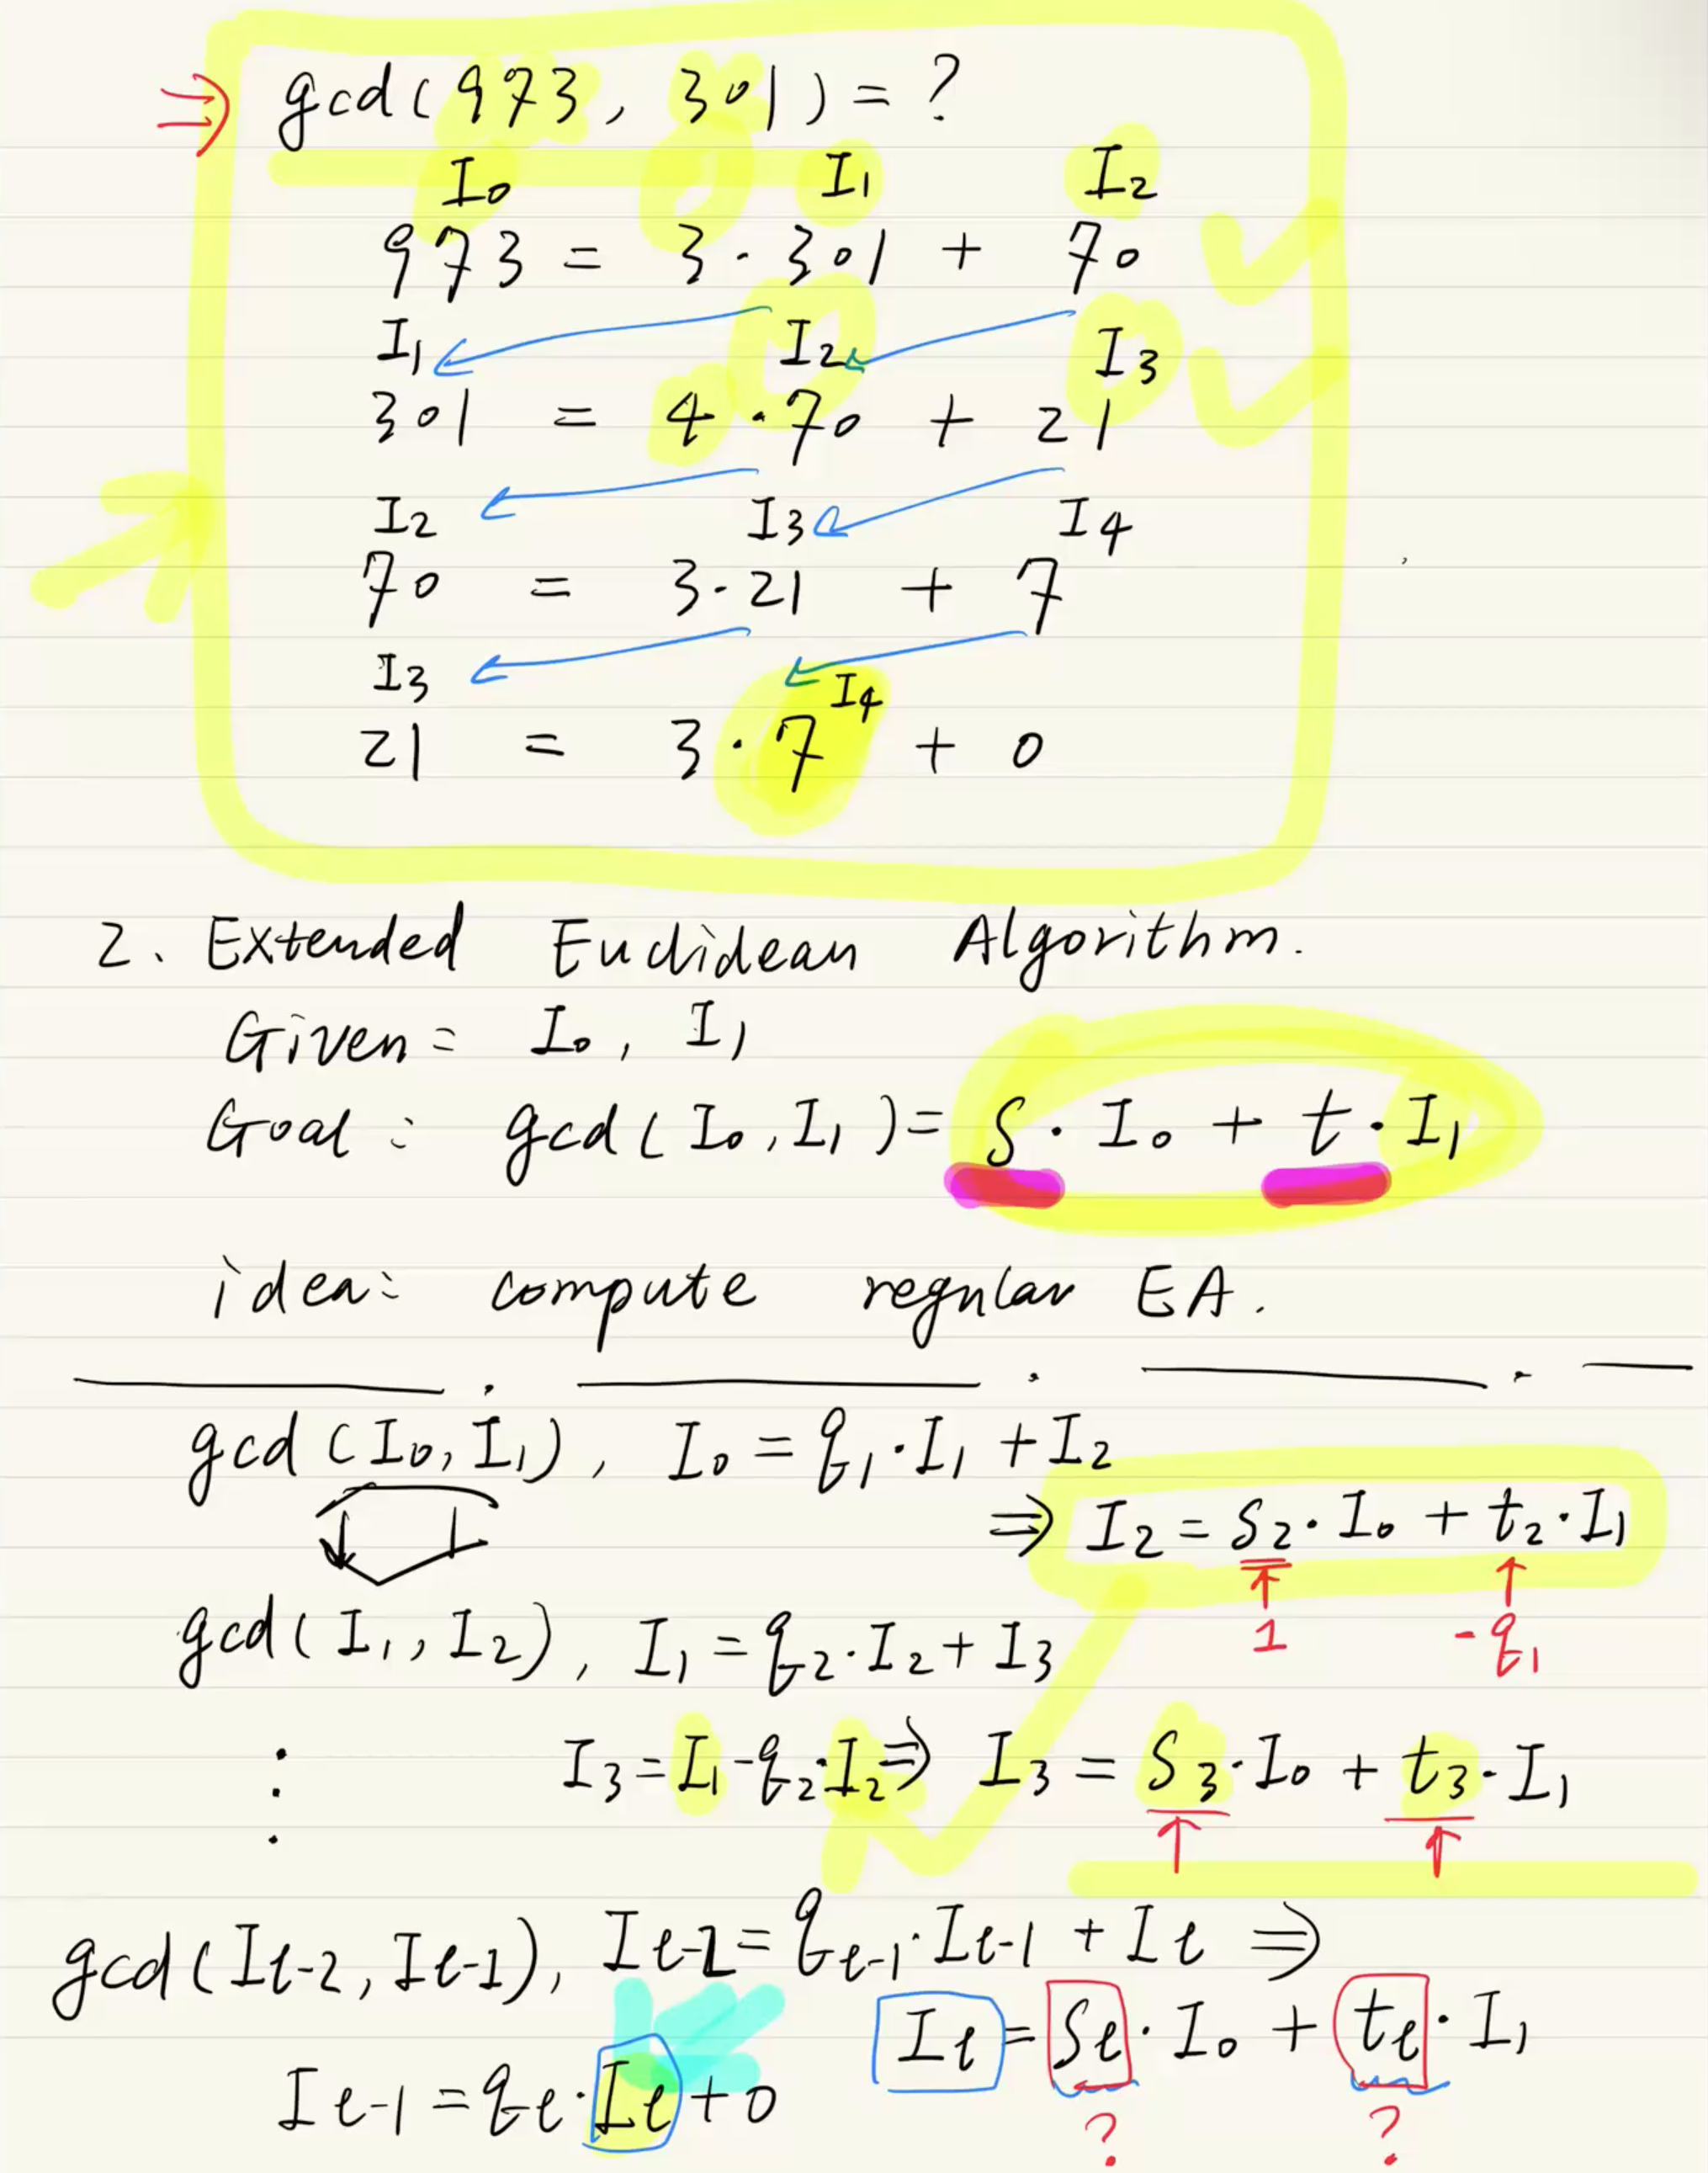 ⇒ gcd(973, 301) = ?
I₀ I₁ I₂
973 = 3 · 301 + 70
I₁ I₂ I₃
301 = 4 · 70 + 21
I₂ I₃ I₄
70 = 3 · 21 + 7
I₃ I₄
21 = 3 · 7 + 0
2. Extended Euclidean Algorithm.
Given: I₀, I₁
Goal: gcd(I₀, I₁) = S · I₀ + t · I₁
idea: compute regular EA.
gcd(I₀, I₁), I₀ = q₁ · I₁ + I₂
⇒ I₂ = S₂ · I₀ + t₂ · I₁
1 -q₁
gcd(I₁, I₂), I₁ = q₂ · I₂ + I₃
⋮ I₃ = I₁ - q₂ · I₂ ⇒ I₃ = S₃ · I₀ + t₃ · I₁
gcd(Iₗ₋₂, Iₗ₋₁), Iₗ₋₂ = qₗ₋₁ · Iₗ₋₁ + Iₗ ⇒
Iₗ = Sₗ · I₀ + tₗ · I₁
Iₗ₋₁ = qₗ · Iₗ + 0
? ?